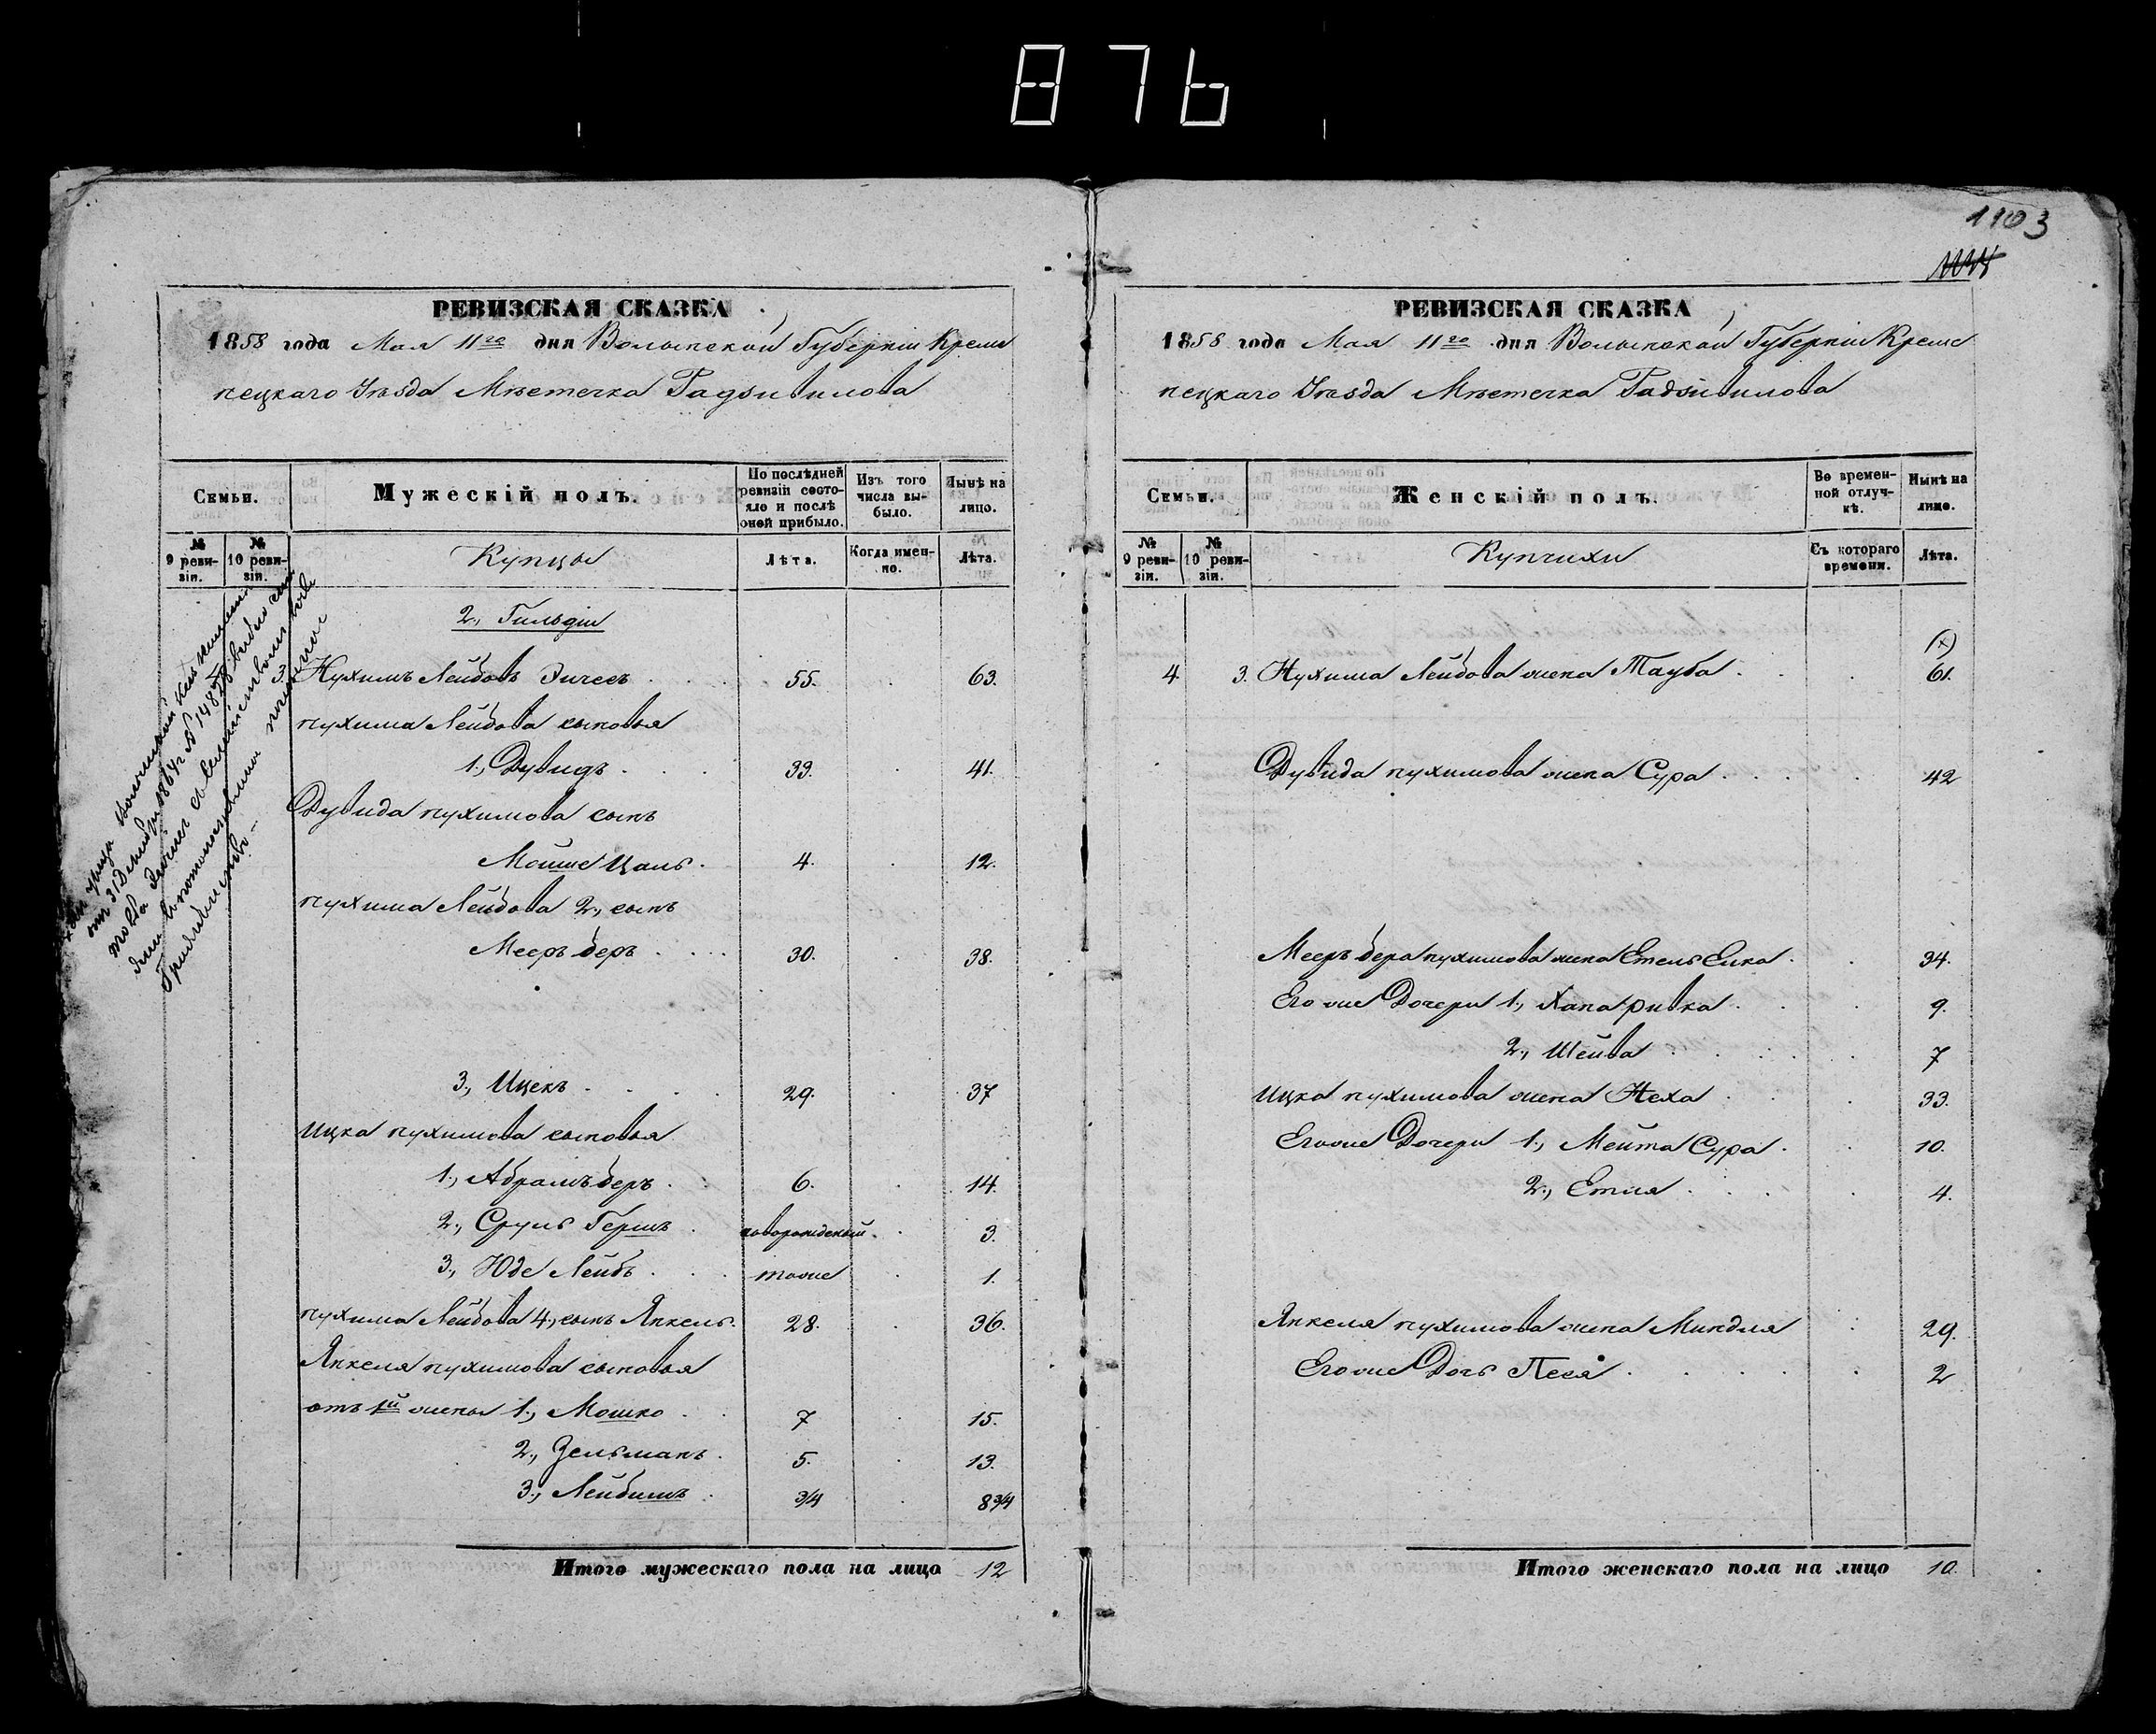 876
1103
РЕВИЗСКАЯ СКАЗКА
1858 года Мая 11го дня Волынской Губерніи Креме
нецкаго Уѣзда Мѣстечка Радзивилова
Семьи.
Мужескій полъ.
По послѣдней ревизіи состояло и послѣ оной прибыло.
Изъ того числа выбыло.
Нынѣ на лицо.
№ 9 ревизіи.
№ 10 ревизіи.
Купцы
Лѣта.
Когда именно.
Лѣта.
2., Гильдіи
3. Нухимъ Лейбовъ 55. 63.
нухима Лейбова сыновья
1., Дувидъ 33. 41.
Дувида нухимова сынъ
Мошше Цаль 4. 12.
нухима Лейбова 2., сынъ
Мееръ беръ 30. 38.
3., Ицекъ 29. 37
ицка нухимова сыновья
1., Абрамъ беръ 6. 14.
2., Сруль Гершъ новорожденый 3.
3., Юде Лейбъ тоже 1.
нухима Лейбова 4., сынъ Янкель 28. 36.
Янкеля нухимова сыновья
отъ 1й жены 1., Мошко 7 15.
2., Зельманъ 5. 13.
3., Лейбишъ 3/4 8 3/4
Итого мужескаго пола на лицо 12
РЕВИЗСКАЯ СКАЗКА
1858 года Мая 11го дня Волынской Губерніи Креме
нецкаго Уѣзда Мѣстечка Радзивилова
Семьи.
Женскій полъ.
Во временной отлучкѣ.
Нынѣ на лицо.
№ 9 ревизіи.
№ 10 ревизіи.
Купчихи
Съ котораго времени.
Лѣта.
(х)
4 3. Нухима Лейбова жена Тауба 61.
Дувида нухимова жена Сура 42
Мееръ бера нухимова жена Етель Елка 34.
Его же Дочери 1., Хана ривка 9.
2., Шейва 7
ицка нухимова жена Неха 33.
Его же Дочери 1., Мейта Сура 10.
2., Етля 4.
Янкеля нухимова жена Миндля 29.
Его же Дочь Песя 2
Итого женскаго пола на лицо 10.